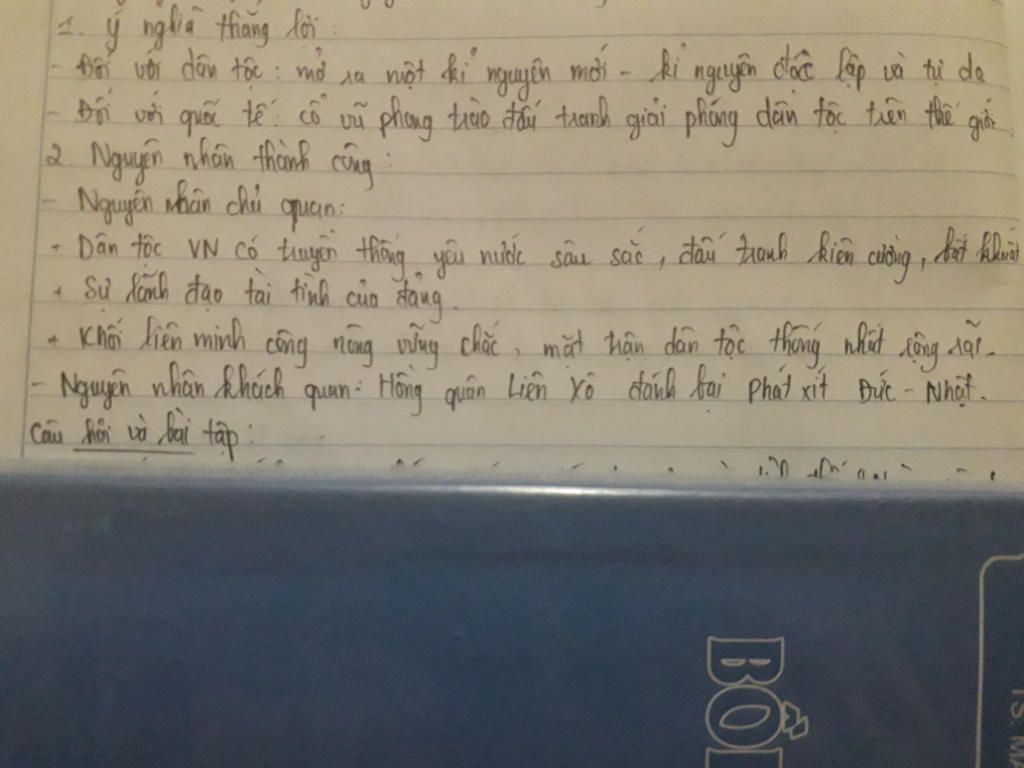 1. Ý nghĩa thắng lợi:
- Đối với dân tộc: mở ra một kỉ nguyên mới - kỉ nguyên độc lập và tự do
- Đối với quốc tế: cổ vũ phong trào đấu tranh giải phóng dân tộc trên thế giới
2. Nguyên nhân thành công:
- Nguyên nhân chủ quan:
+ Dân tộc VN có truyền thống yêu nước sâu sắc, đấu tranh kiên cường, bất khuất
+ Sự lãnh đạo tài tình của đảng.
+ Khối liên minh công nông vững chắc, mặt trận dân tộc thống nhất rộng rãi.
- Nguyên nhân khách quan: Hồng quân Liên Xô đánh bại phát xít Đức - Nhật.
Câu hỏi và bài tập:
TS. MA